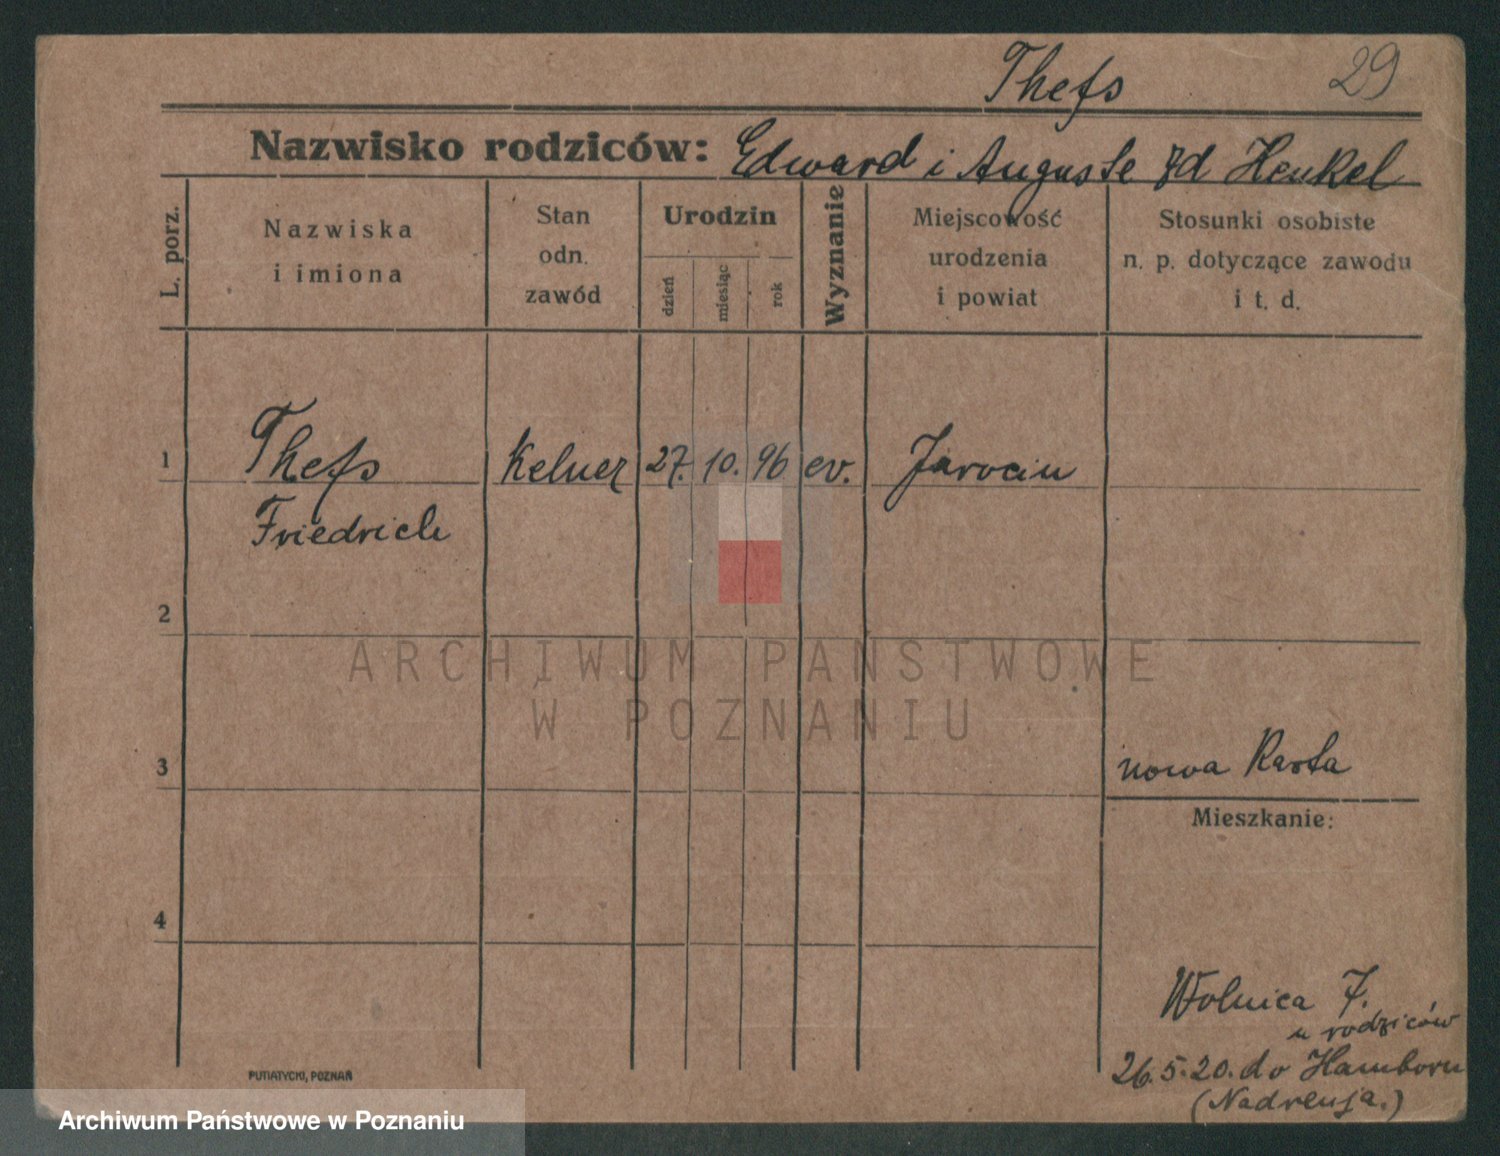 Thefs 29
Nazwisko rodziców: Edward i Auguste zd Henkel
L. porz.
Nazwiska
i imiona
Stan
odn.
zawód
Urodzin
dzień
miesiąc
rok
Wyznanie
Miejscowość
urodzenia
i powiat
Stosunki osobiste
n. p. dotyczące zawodu
i t. d.
1 Thefs Kelner 27. 10. 96 ev. Jarocin
Friedrich
2
ARCHIWUM PAŃSTWOWE
W POZNANIU
3 nowa Karta
Mieszkanie:
4
Wolnica 7.
u rodziców
26.5.20. do Hamborn
(Nadrenja.)
PUTIATYCKI, POZNAŃ
Archiwum Państwowe w Poznaniu